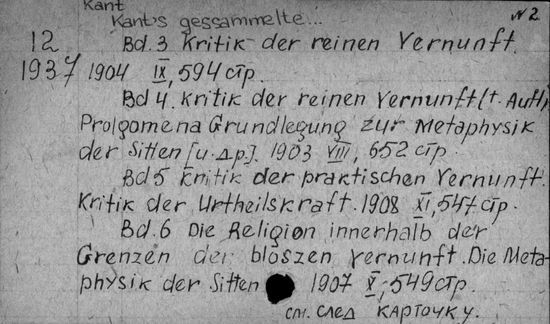 Kant
Kant's gessammelte... № 2
12 Bd. 3 Kritik der reinen Vernunft.
1937 1904 IX, 594 стр.
Bd 4. Kritik der reinen Vernunft (1. Aufl),
Prolgomena Grundlegung zur Metaphysik
der Sitten [u. др.]. 1903 VIII, 652 стр.
Bd 5 Kritik der praktischen Vernunft.
Kritik der Urtheilskraft. 1908 XI, 547 стр.
Bd. 6 Die Religion innerhalb der
Grenzen der bloszen Vernunft. Die Meta-
physik der Sitten 1907 X, 549 стр.
см. след карточку.